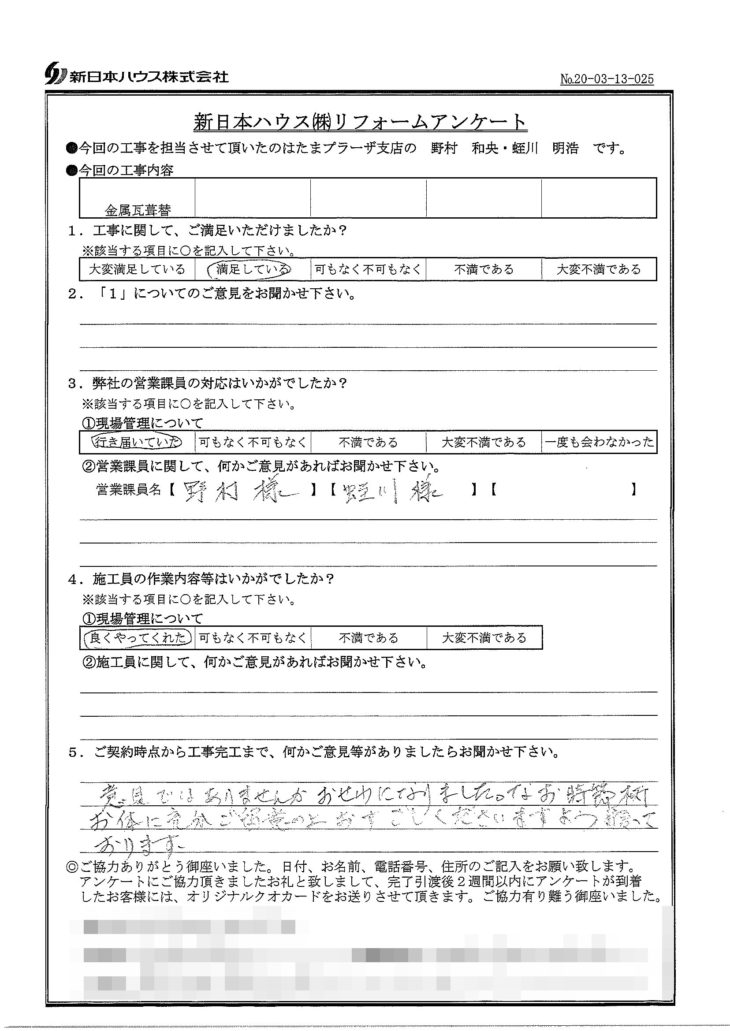 新日本ハウス株式会社
No.20-03-13-025
新日本ハウス㈱リフォームアンケート
●今回の工事を担当させて頂いたのはたまプラーザ支店の 野村 和央・蛭川 明浩 です。
●今回の工事内容
金属瓦葺替
1．工事に関して、ご満足いただけましたか？
※該当する項目に○を記入して下さい。
大変満足している 満足している 可もなく不可もなく 不満である 大変不満である
2．「1」についてのご意見をお聞かせ下さい。
3．弊社の営業課員の対応はいかがでしたか？
※該当する項目に○を記入して下さい。
①現場管理について
行き届いていた 可もなく不可もなく 不満である 大変不満である 一度も会わなかった
②営業課員に関して、何かご意見があればお聞かせ下さい。
営業課員名【 野村 様 】【 蛭川 様 】【 】
4．施工員の作業内容等はいかがでしたか？
※該当する項目に○を記入して下さい。
①現場管理について
良くやってくれた 可もなく不可もなく 不満である 大変不満である
②施工員に関して、何かご意見があればお聞かせ下さい。
5．ご契約時点から工事完工まで、何かご意見等がありましたらお聞かせ下さい。
意見ではありませんが おせわになりました。なお 時節柄
お体に充分ご留意のと おすごしくださいますよう 願って
おります。
◎ご協力ありがとう御座いました。日付、お名前、電話番号、住所のご記入をお願い致します。
アンケートにご協力頂きましたお礼と致しまして、完了引渡後２週間以内にアンケートが到着
したお客様には、オリジナルクオカードをお送りさせて頂きます。ご協力有り難う御座いました。